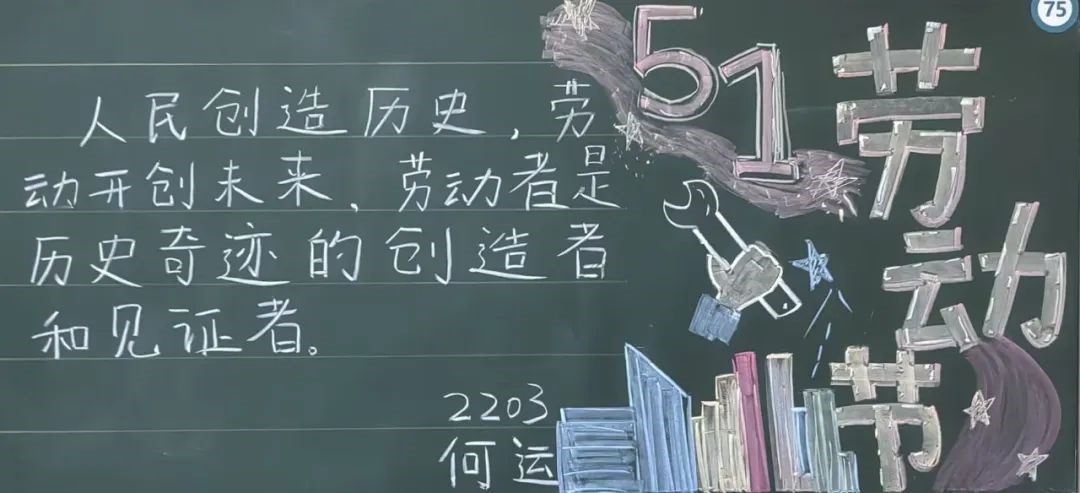 人民创造历史,劳
动开创未来,劳动者是
历史奇迹的创造者
和见证者。
2203
何运
51
劳
动
节
75